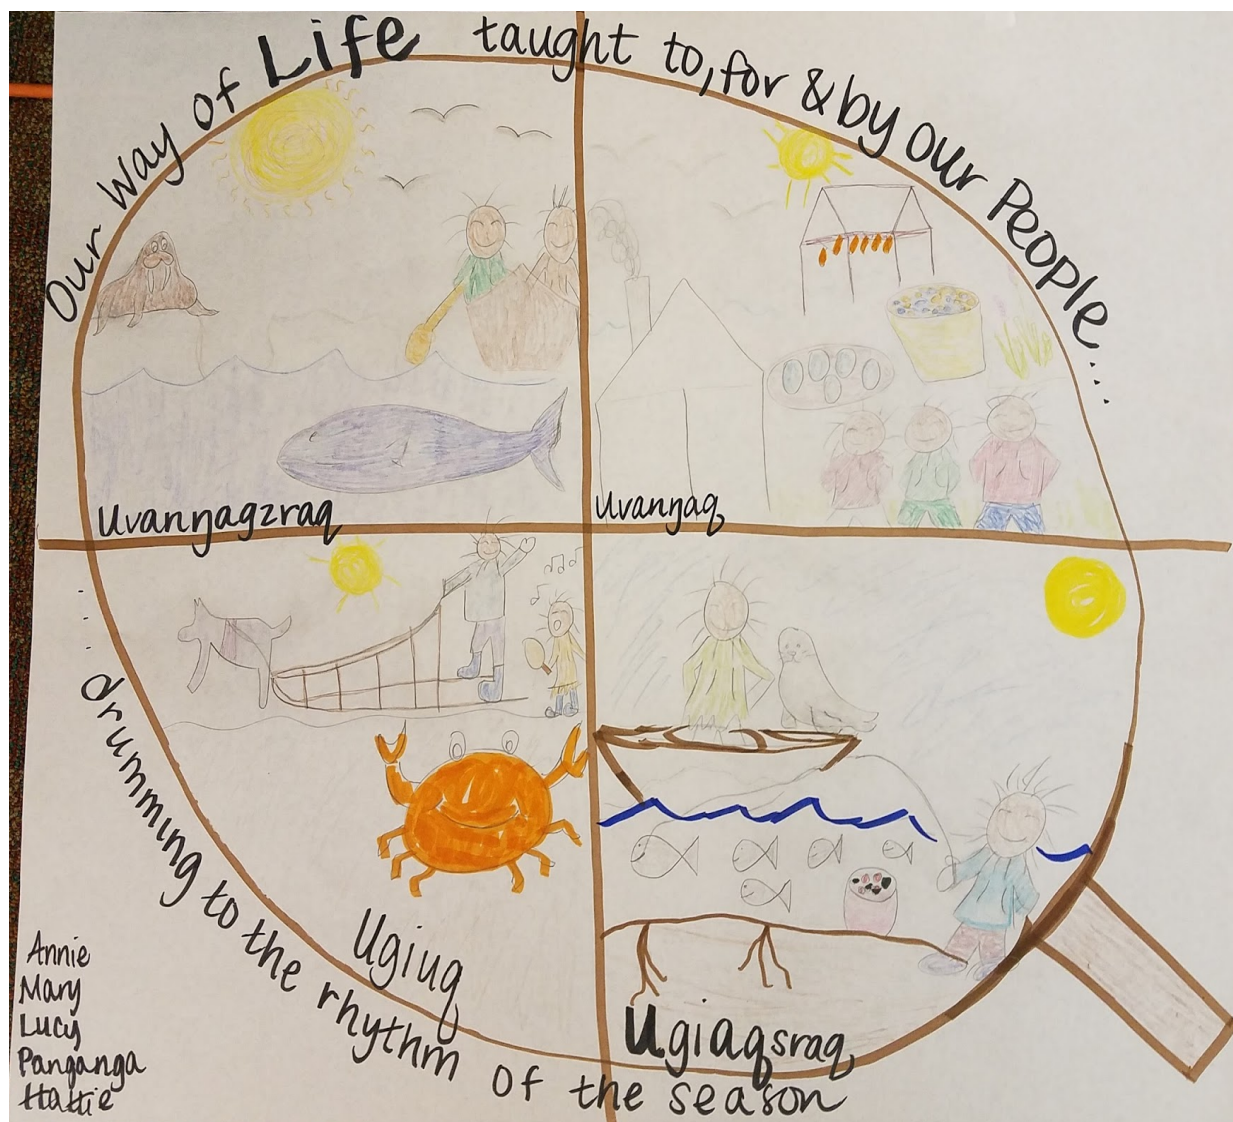 Our Way of Life taught to, for & by our People...
Uvaŋŋagzraq
Uvaŋŋaq
Ugiuq
Ugiaqsraq
... drumming to the rhythm of the season
Annie
Mary
Lucy
Panganga
Hattie